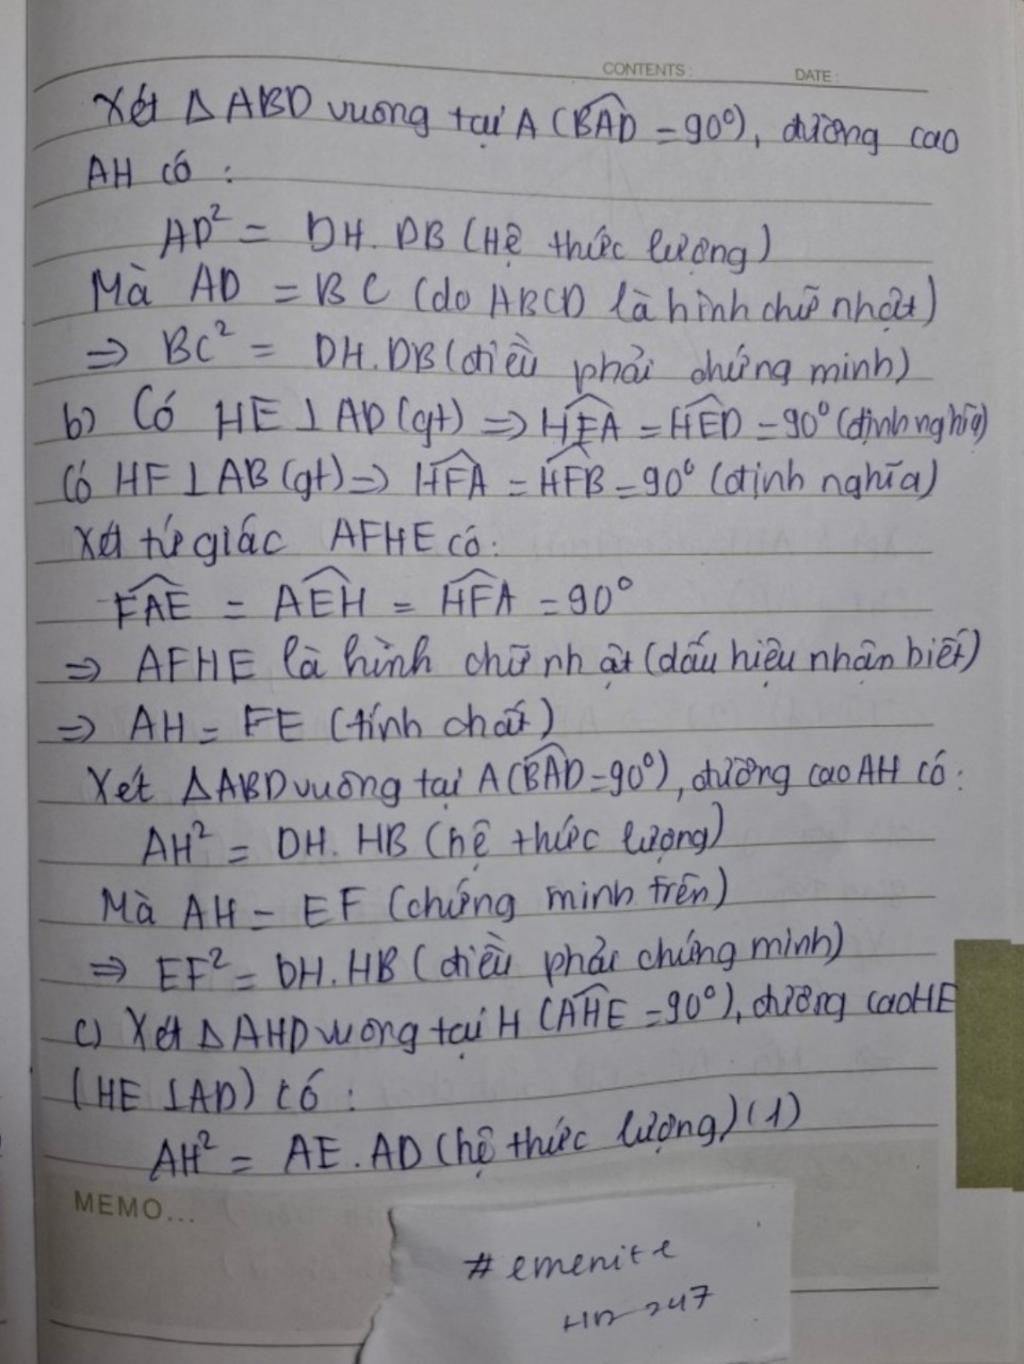 CONTENTS: DATE:
Xét ΔABD vuông tại A (BAD = 90°), đường cao
AH có :
AD² = DH. DB (Hệ thức lượng)
Mà AD = BC (do ABCD là hình chữ nhật)
⇒ BC² = DH.DB (điều phải chứng minh)
b) Có HE ⊥ AD (gt) ⇒ HEA = HED = 90° (định nghĩa)
Có HF ⊥ AB (gt) ⇒ HFA = HFB = 90° (định nghĩa)
Xét tứ giác AFHE có:
FAE = AEH = HFA = 90°
⇒ AFHE là hình chữ nhật (dấu hiệu nhận biết)
⇒ AH = FE (tính chất)
Xét ΔABD vuông tại A (BAD = 90°), đường cao AH có :
AH² = DH. HB (hệ thức lượng)
Mà AH = EF (chứng minh trên)
⇒ EF² = DH.HB (điều phải chứng minh)
c) Xét ΔAHD vuông tại H (AHE = 90°), đường cao HE
(HE ⊥ AD) có :
AH² = AE. AD (hệ thức lượng) (1)
MEMO...
# emenite
247